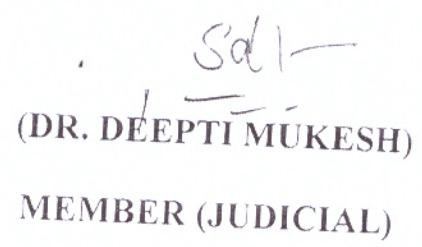 Sd/-
(DR. DEEPTI MUKESH)
MEMBER (JUDICIAL)